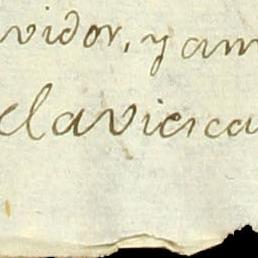 vidor, y am
claviesca